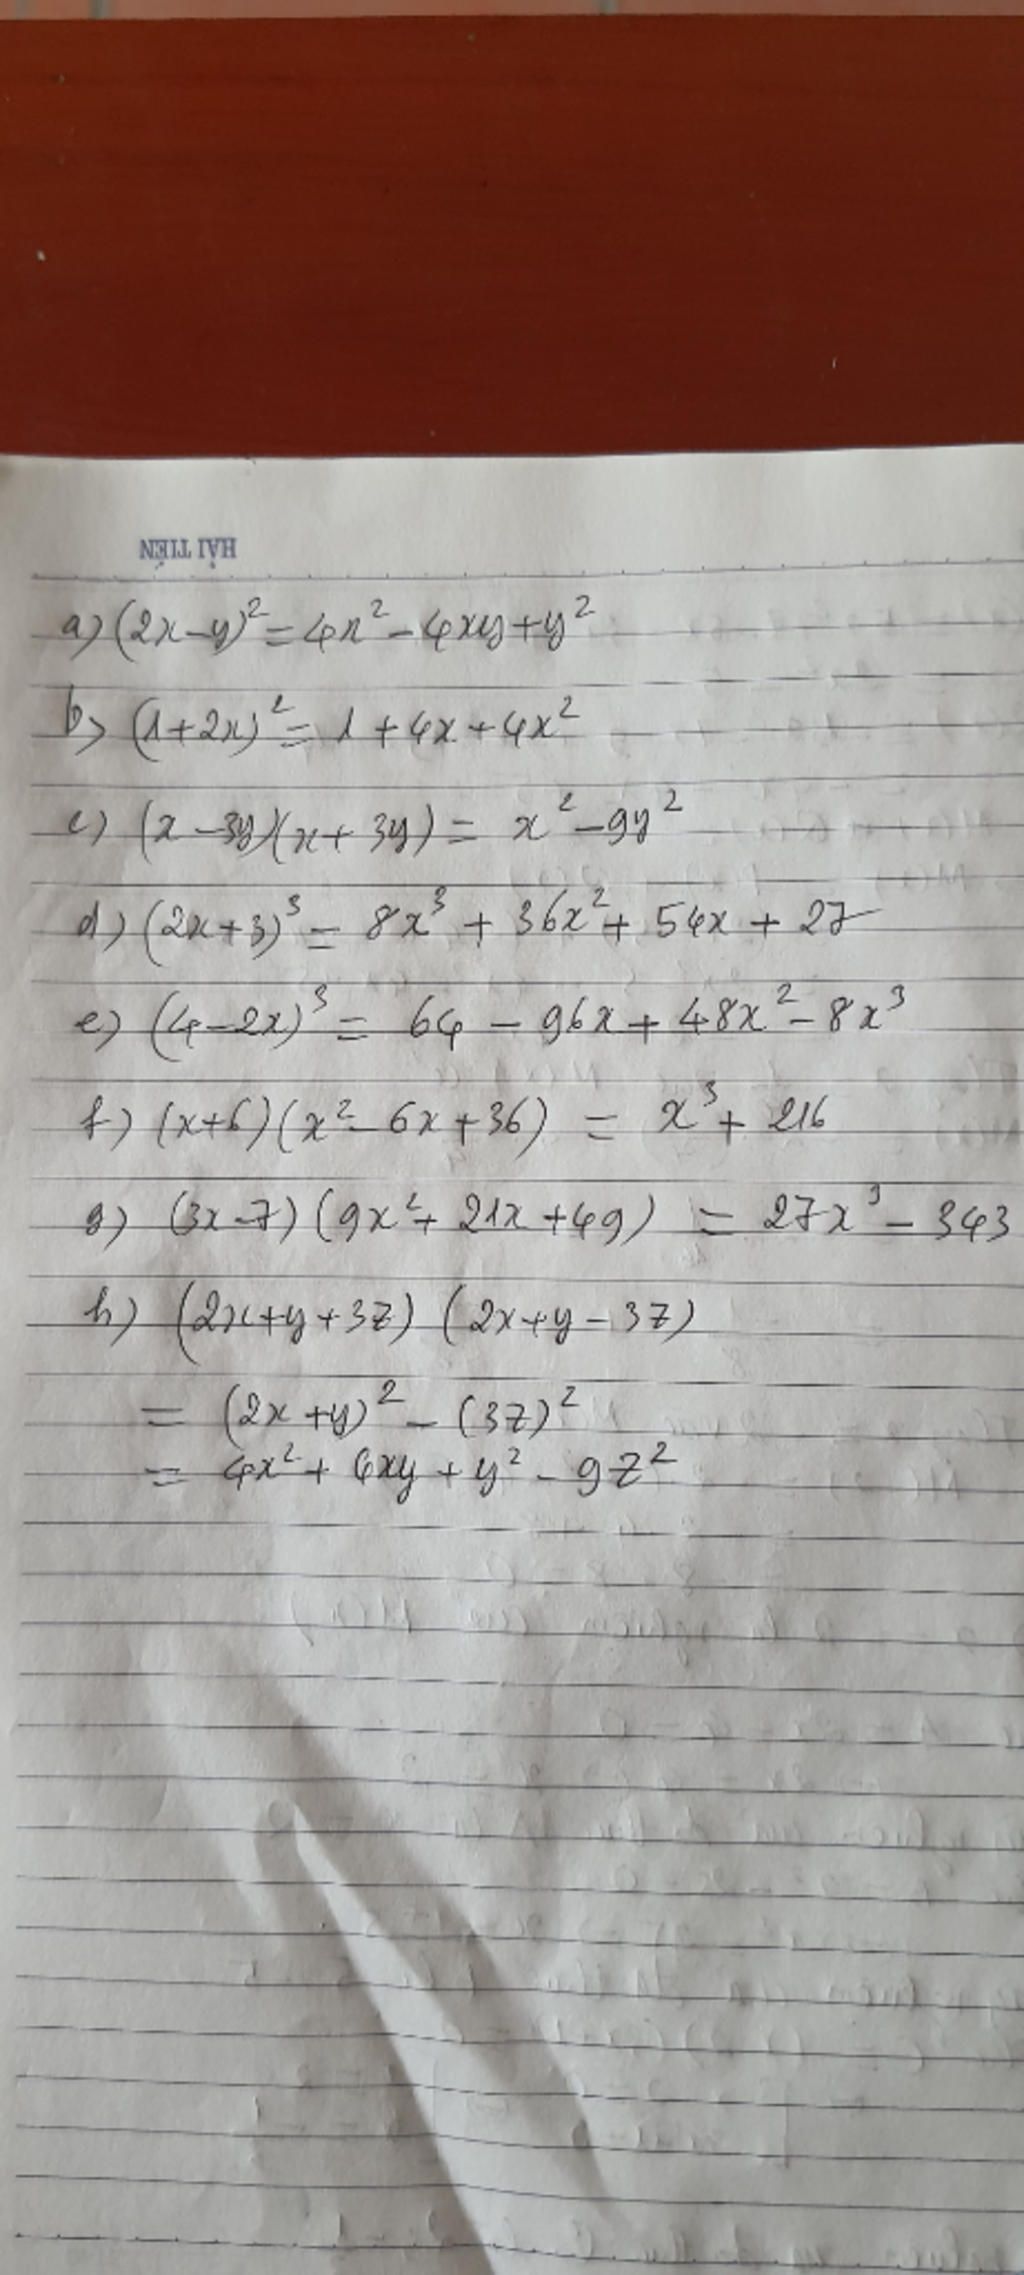 HẢI TIẾN
a) (2x-y)² = 4x² - 4xy + y²
b) (1+2x)² = 1 + 4x + 4x²
c) (x-3y)(x+3y) = x² - 9y²
d) (2x+3)³ = 8x³ + 36x² + 54x + 27
e) (4-2x)³ = 64 - 96x + 48x² - 8x³
f) (x+6)(x² - 6x + 36) = x³ + 216
g) (3x-7)(9x² + 21x + 49) = 27x³ - 343
h) (2x+y+3z)(2x+y-3z)
= (2x+y)² - (3z)²
= 4x² + 4xy + y² - 9z²